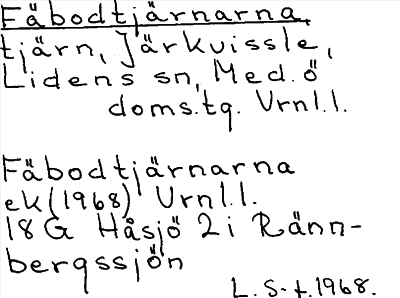 Fäbodtjärnarna,
tjärn, Järkvissle,
Lidens sn, Med. ö
doms.tg. Vrnl.l.
Fäbodtjärnarna
ek (1968) Vrnl.l.
18G Håsjö 2i Ränn-
bergssjön
L.S-t. 1968.